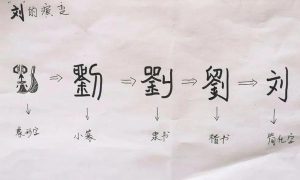 "刘"的演变
⇒ 劉 ⇒ 劉 ⇒ 劉 → 刘
↓ ↓ ↓ ↓ ↓
象形字 小篆 隶书 楷书 简化字